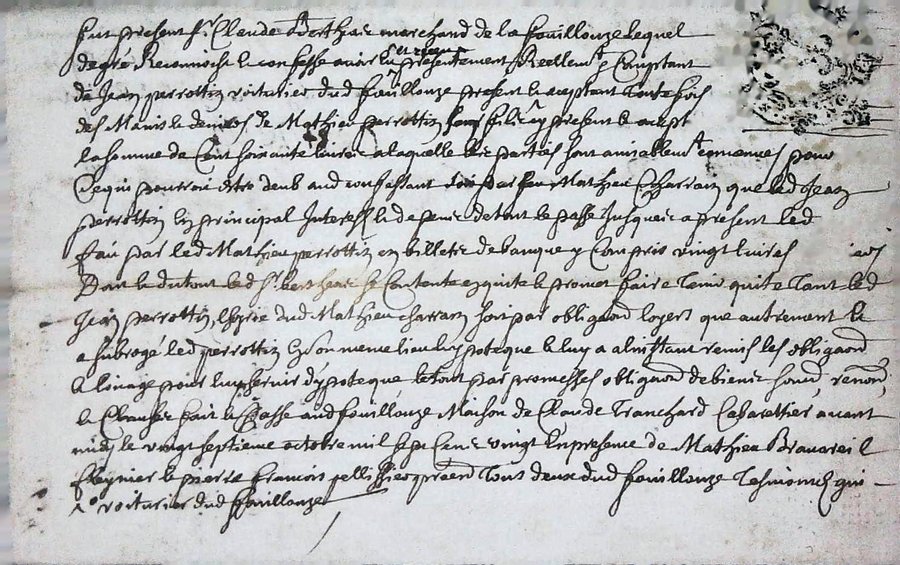 fut present Sr Claude Berthéas marchand de la fouillouze Lequel
de gré Reconnoist & confesse avoir eu & receu presentement & Reellemt & Comptant
de Jean perrottin voiturier dud fouillouze present & aceptant Toutefois
des Mains & deniers de Mathieu perrottin son fils cy present & acept
la somme de Cent soixante livres a laquelle les parties sont amiablemt convenues pour
Ce qui pouvoit estre deub aud confessant par Mathieu Charrain que led Jean
perrottin en principal Interests & depens de tout le passé Jusques a present led
fait par led Mathieu perrottin en billets de banque y Compris vingt livres
Dont & du tout led Sr bertheas se Contente & quite & promet faire Tenir quite Tant led
Jean perrottin, dud Mathieu charrain soit par obligaon loyers que autrement &
a subrogé led perrottin en son meme lieu hypoteque & luy a a linstant remis les obligaons
& louage pour luy servir dypoteque & tout par promesses obligaon de biens soumd renond
& Clauses fait & Passé aud fouillouze Maison de Claude Tranchard Cabarettier, avant
midy le vingt septieme octobre mil sept Cens vingt En presence de Mathieu
& pierre francois Tous deux dud fouillouze Tesmoins qui
voiturier dud fouillouze